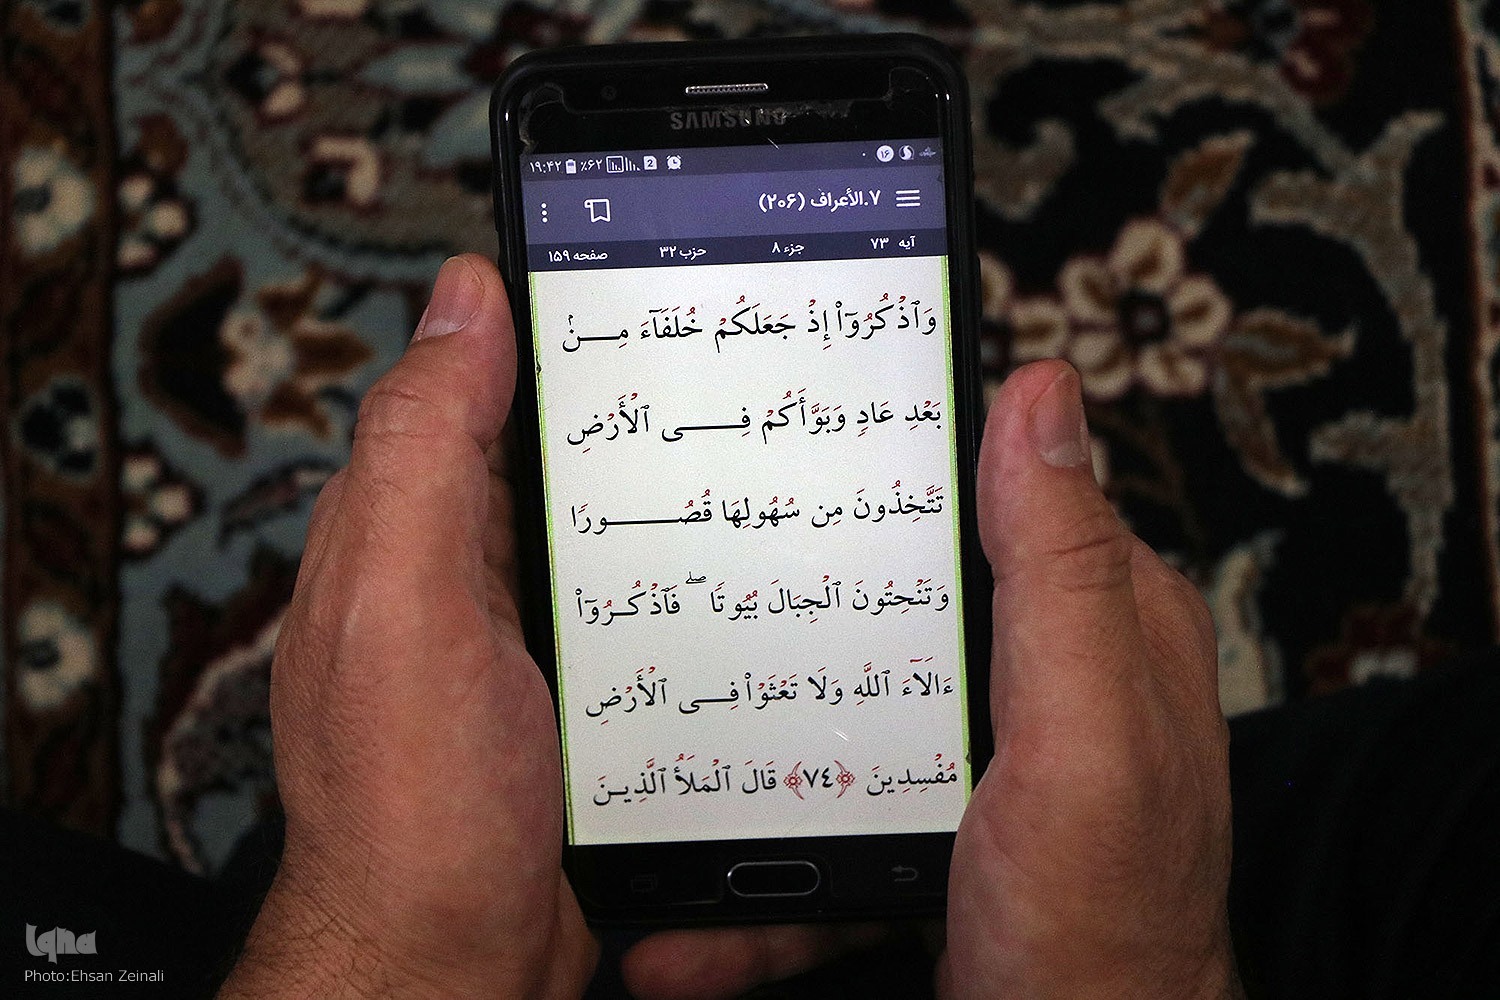 SAMSUNG
۱۹:۴۲ ٪۶۲ 2 ۱۶
۷.الأعراف (۲۰۶)
آیه ۷۳ جزء ۸ حزب ۳۲ صفحه ۱۵۹
وَٱذْكُرُوٓا۟ إِذْ جَعَلَكُمْ خُلَفَآءَ مِنۢ
بَعْدِ عَادٍ وَبَوَّأَكُمْ فِى ٱلْأَرْضِ
تَتَّخِذُونَ مِن سُهُولِهَا قُصُورًا
وَتَنْحِتُونَ ٱلْجِبَالَ بُيُوتًا ۖ فَٱذْكُرُوٓا۟
ءَالَآءَ ٱللَّهِ وَلَا تَعْثَوْا۟ فِى ٱلْأَرْضِ
مُفْسِدِينَ ﴿٧٤﴾ قَالَ ٱلْمَلَأُ ٱلَّذِينَ
Iqna
Photo:Ehsan Zeinali